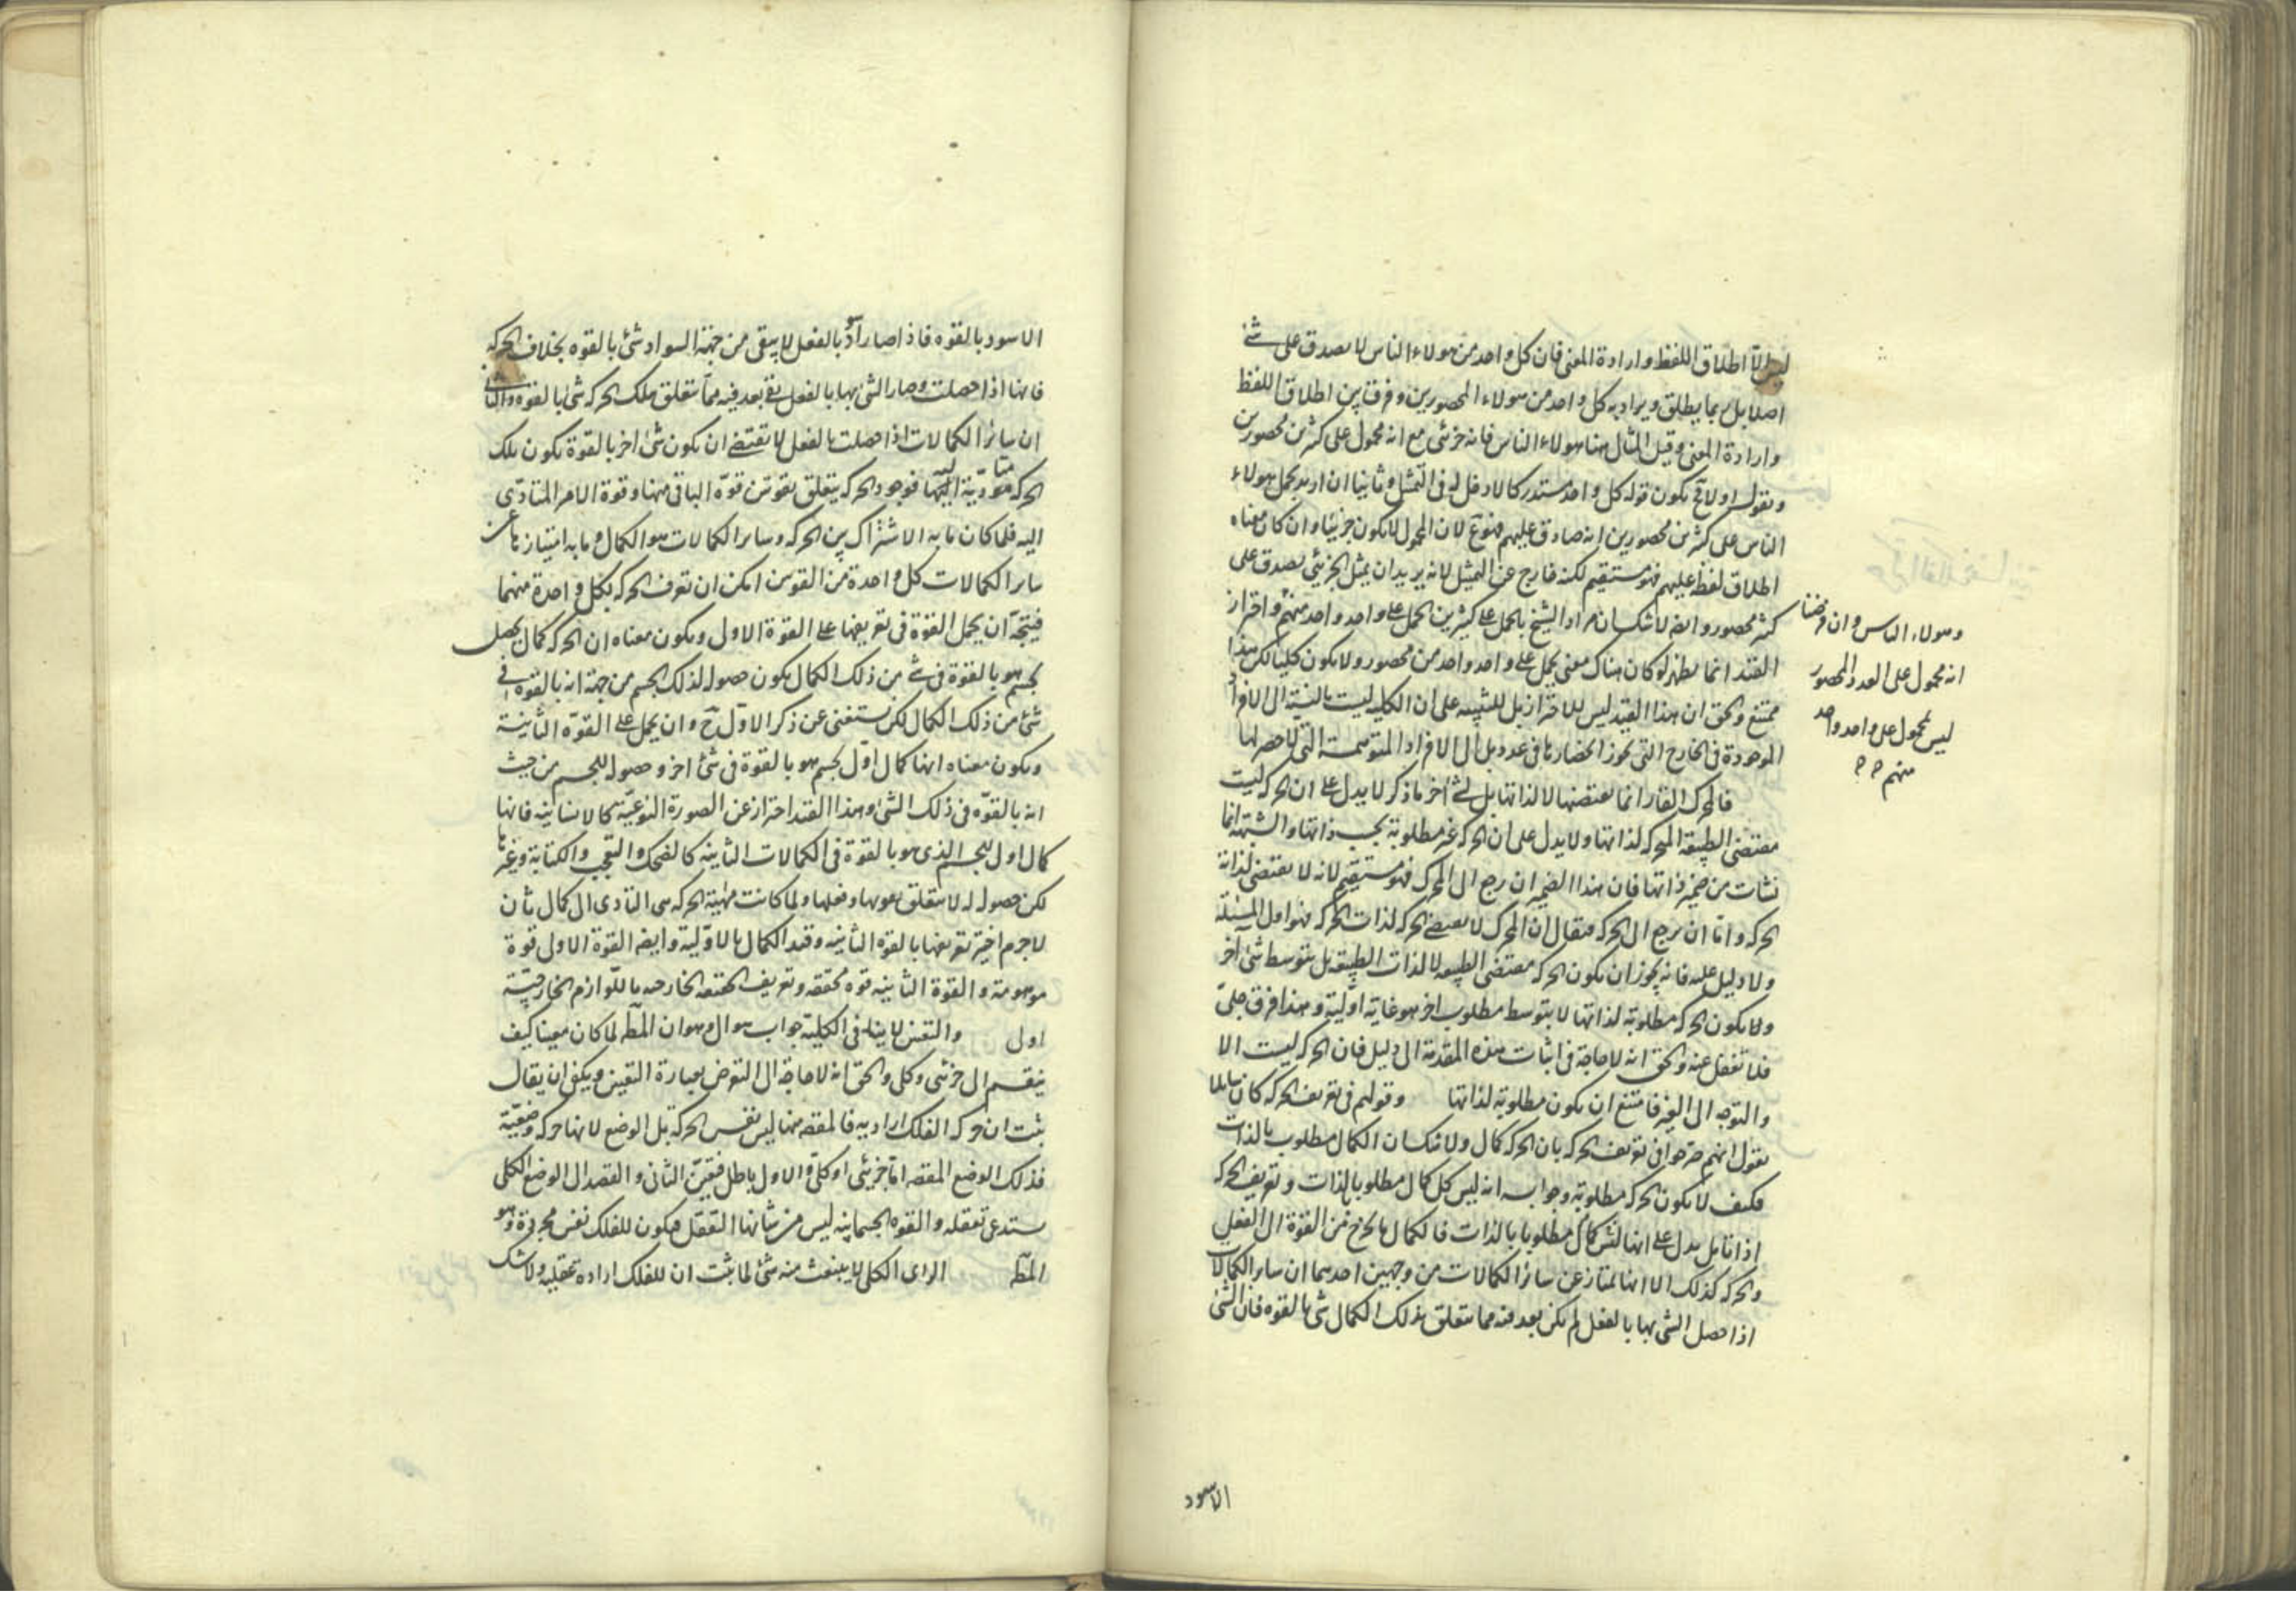 ليس الا اطلاق اللفظ وارادة المعنى فان كل واحد من هولاء الناس لا يصدق على شئ
اصلا بل ربما يطلق ويراد به كل واحد من هولاء المحصورين وفرق بين اطلاق اللفظ
وارادة المعنى وقيل المثال هنا هولاء الناس فانه جزئى مع انه محمول على كثيرين محصورين
ونقول اولا ح يكون قوله كل واحد مستدركا لا دخل له فى التمثيل وثانيا ان اريد بحمل هولاء
الناس على كثيرين محصورين انه صادق عليهم فممنوع لان المحمول لا يكون جزئيا وان كان معناه
اطلاق لفظه عليهم فهو مستقيم لكنه خارج عن التمثيل لانه يريد ان يمثل الجزئى يصدق على
كثير محصور وايضا لا شك ان مراد الشيخ بالحمل على كثيرين الحمل على واحد واحد منهم واحتراز
القيد انما يظهر لو كان هناك معنى يحمل على واحد واحد من محصور ولا يكون كليا لكن هذا
ممتنع والحق ان هذا القيد ليس للاحتراز بل للتنبيه على ان الكلية ليست بالنسبة الى الافراد
الموجودة فى الخارج التى يجوز انحصارها فى عدد بل الى الافراد المتوهمة التى لا حصر لها
فالمحرك القار انما يقتضيها لا لذاتها بل لشئ آخر ما ذكر لا يدل على ان الحركة ليست
مقتضى الطبيعة المحركة لذاتها ولا يدل على ان الحركة غير مطلوبة بحسب ذاتها والشبهة انما
نشات من ضمير ذاتها فان هذا الضمير ان رجع الى المحرك فهو مستقيم لانه لا يقتضى لذاته
الحركة واما ان يرجع الى الحركة فيقال ان المحرك لا يقتضى الحركة لذات الحركة فهو اول المسئلة
ولا دليل عليه فانه يجوز ان يكون الحركة مقتضى الطبيعة لا لذات الطبيعة بل بتوسط شئ آخر
ولا يكون الحركة مطلوبة لذاتها لا بتوسط مطلوب اخر هو غاية اولية وهذا فرق جلىّ
فلا تغفل عنه والحق انه لا حاجة فى اثبات هذه المقدمة الى دليل فان الحركة ليست الا
والتوجه الى الغير فامتنع ان يكون مطلوبة لذاتها وقولهم فى تعريف الحركة كان قائلا
يقول انهم صرحوا فى تعريف الحركة بان الحركة كمال ولا شك ان الكمال مطلوب بالذات
فكيف لا يكون الحركة مطلوبة وجوابه انه ليس كل كمال مطلوبا بالذات وتعريف الحركة
اذا تامل يدل على انها ليس كمال مطلوبا بالذات فالكمال ما يخرج من القوة الى الفعل
والحركة كذلك الا انها تمتاز عن سائر الكمالات من وجهين احدهما ان ساير الكمالات
اذا حصل الشئ بها بالفعل لم يكن بعد فيه مما يتعلق بذلك الكمال شئ بالقوه فان الشئ
وهولاء الناس وان فرضنا
انه محمول على العدد المحصور
ليس محمول على واحد واحد
منهم
الاسود
الاسود بالقوه فاذا صار اسود بالفعل لا يبقى من جهة السواد شئ بالقوه بخلاف الحركة
فانها اذا حصلت وصار الشئ بها بالفعل بقى بعد فيه مما يتعلق بتلك الحركة شئ بالقوه والثانى
ان سائر الكمالات اذا حصلت بالفعل لا يقتضى ان يكون شئ اخر بالقوة يكون تلك
الحركة متادية اليها فوجود الحركة يتعلق بقوتين قوة الباقى منها وقوة الامر المتادّى
اليه فلما كان ما به الاشتراك بين الحركة وساير الكمالات هو الكمال وما به امتيازها عن
ساير الكمالات كل واحدة من القوتين امكن ان تعرف الحركة بكل واحدة منهما
فيتجه ان يحمل القوة فى تعريفها على القوة الاول ويكون معناه ان الحركة كمال يحصل
لجسم هو بالقوة فى شئ من ذلك الكمال يكون حصوله لذلك الجسم من جهة انه بالقوة فى
شئ من ذلك الكمال لكن يستغنى عن ذكر الاول ح وان يحمل على القوة الثانية
ويكون معناه انها كمال اول لجسم هو بالقوة فى شئ اخر وحصوله للجسم من حيث
انه بالقوة فى ذلك الشئ وهذا القيد احتراز عن الصورة النوعية كالانسانية فانها
كمال اول للجسم الذى هو بالقوة فى الكمالات الثانية كالضحك والتعجب والكتابة وغيرها
لكن حصوله له لا يتعلق بقوتها وفعلها ولما كانت مهية الحركة هى التادى الى كمال ثان
لا جرم اختير تعريفها بالقوه الثانية وقيد الكمال بالاولية وايضا القوة الاول قوة
موهومة والقوة الثانية قوة محققة وتعريف الحقيقة الخارجية باللوازم الخارجية
اول والتعين لا ينافى الكلية جواب سوال وهو ان المط لما كان معينا كيف
ينقسم الى جزئى وكلى والحق انه لا حاجة الى التعرض بعبارة التعين ويكفى ان يقال
ثبت ان حركة الفلك ارادية فالمقصد منها ليس نفس الحركة بل الوضع لانها حركة وضعية
فذلك الوضع المقصد اما جزئى او كلى والاول باطل فتعين الثانى والقصد الى الوضع الكلى
يستدعى تعقله والقوه الجسمانيه ليس من شانها التعقل فيكون للفلك نفس مجردة وهو
المط الراى الكلى لا ينبعث منه شئ لما ثبت ان للفلك اراده عقليه ولا شك